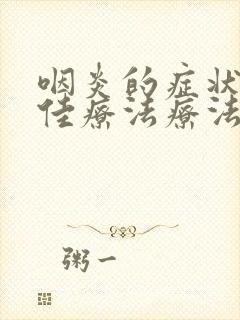 咽炎的症状
佳療法療法
粥一